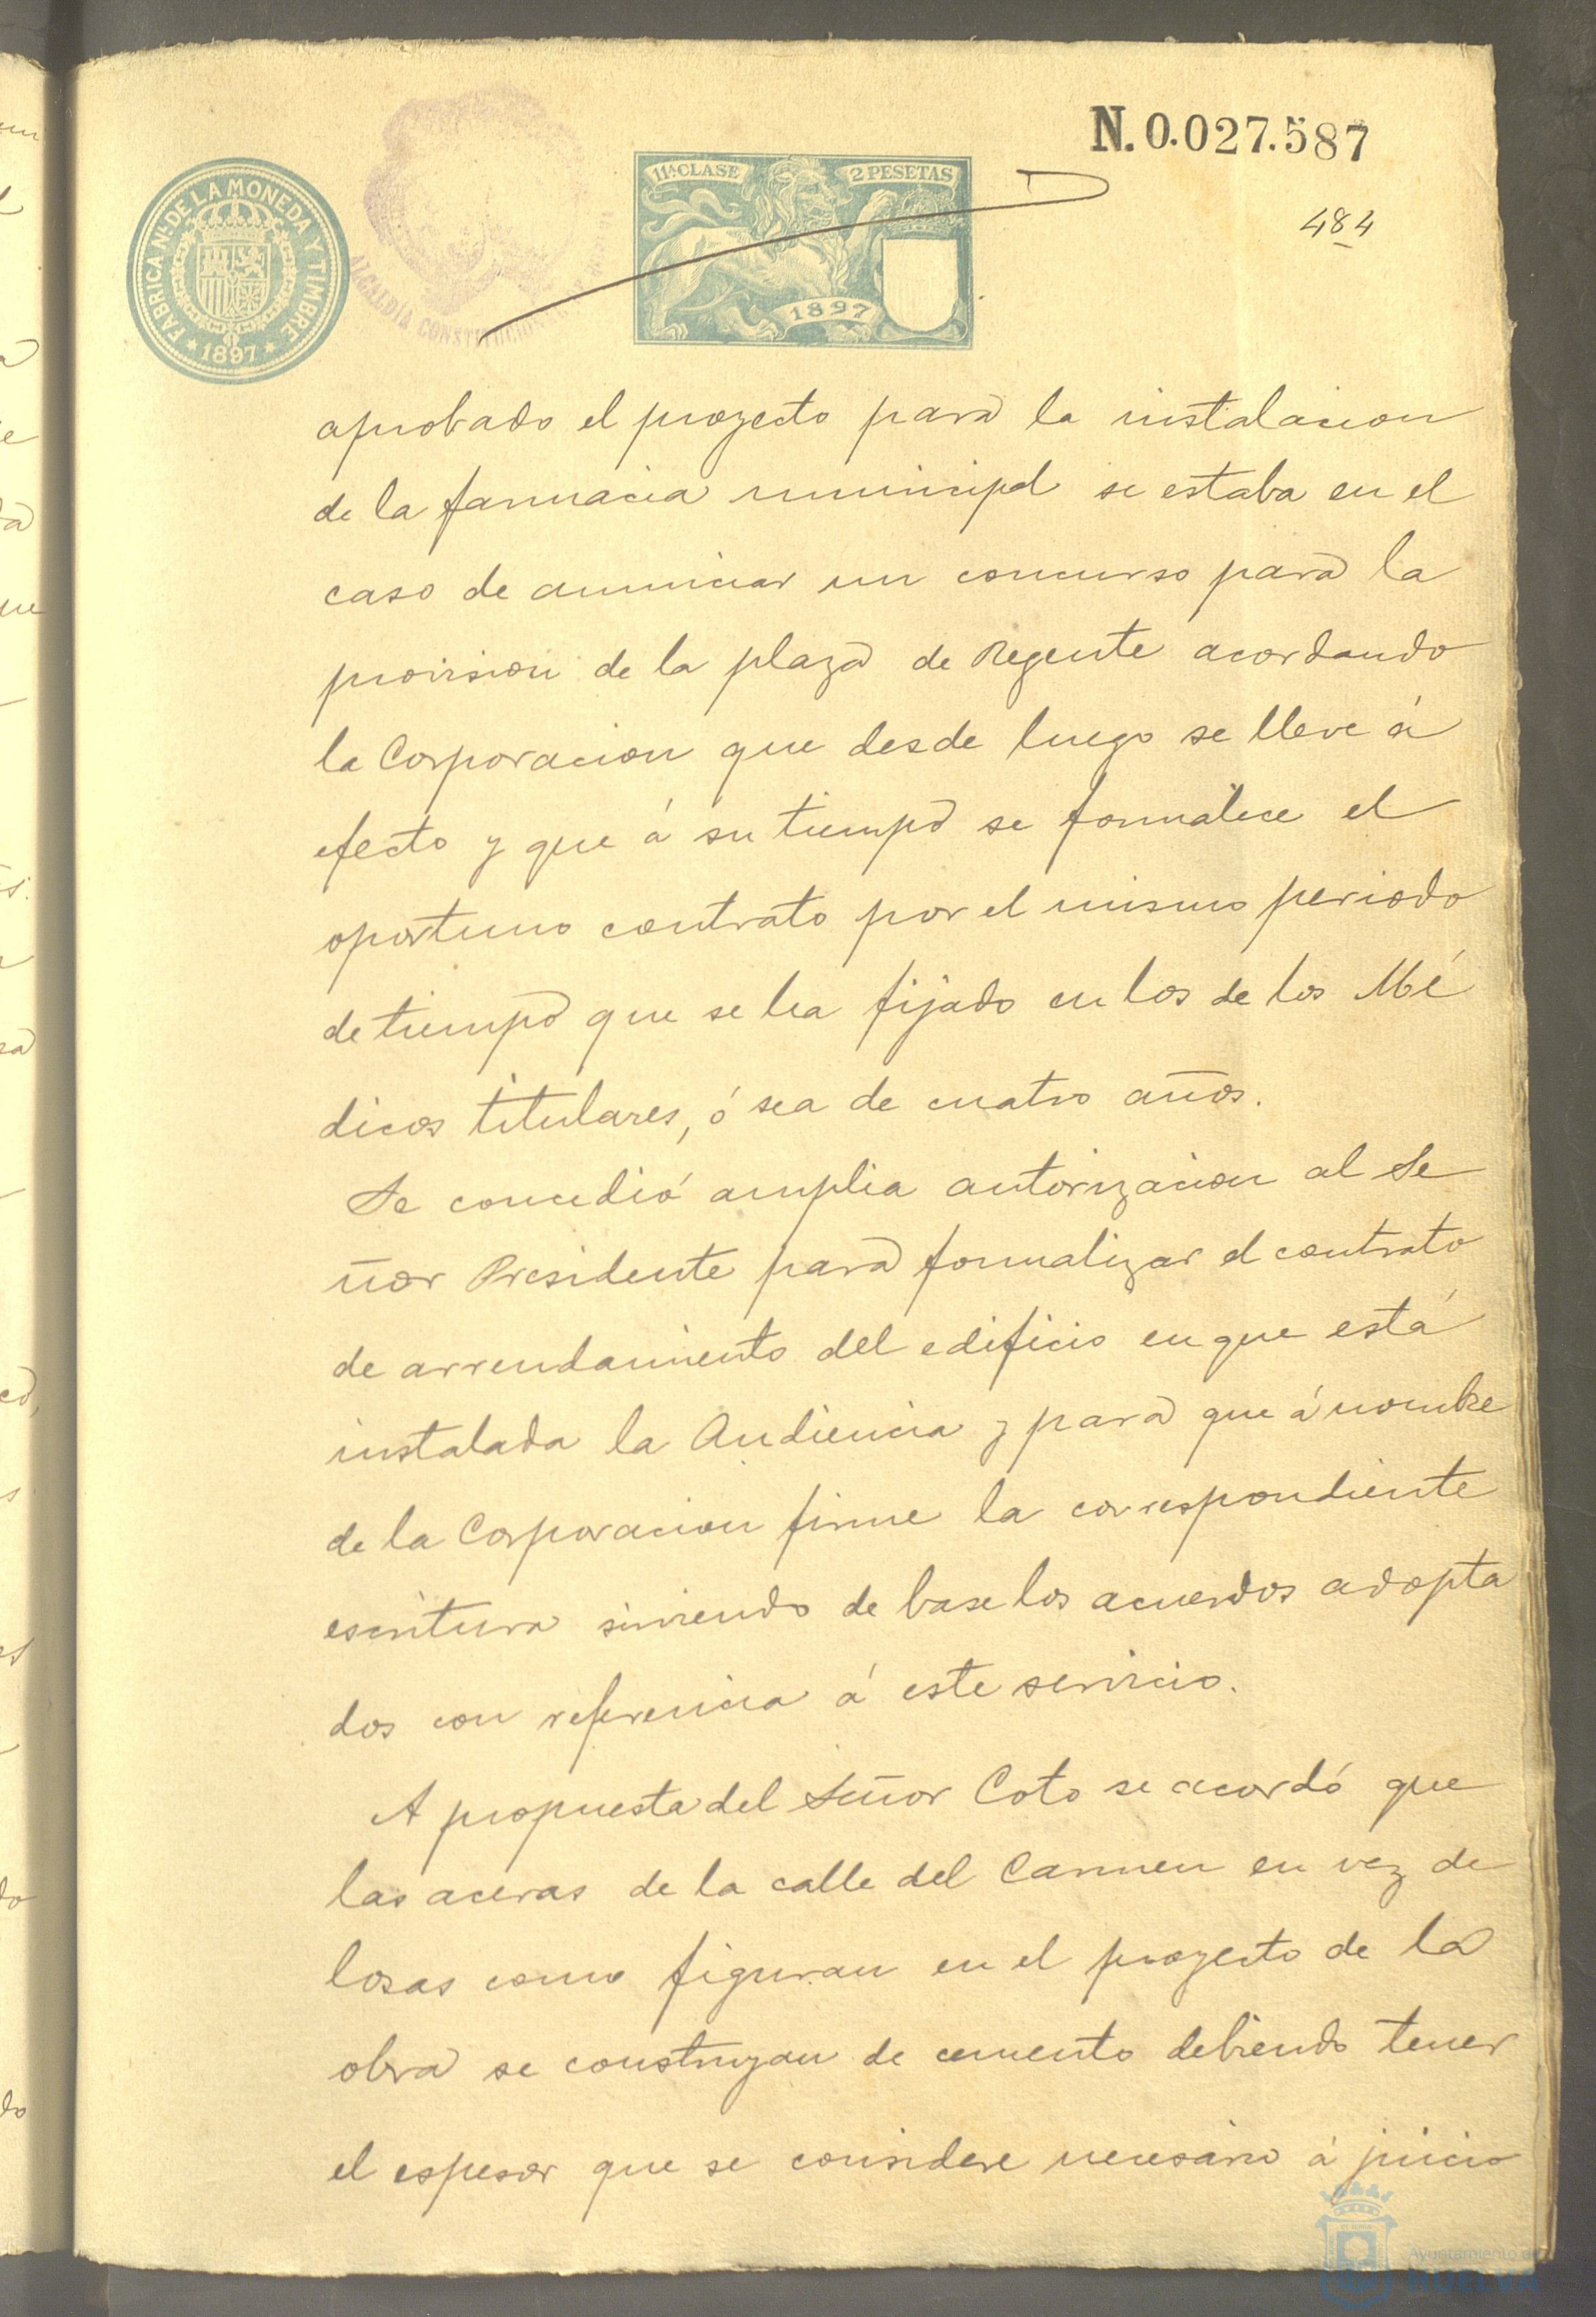 N. 0.027.587
484
FABRICA NAL DE LA MONEDA Y TIMBRE
* 1897 *
ALCALDÍA CONSTITUCIONAL
11ª CLASE 2 PESETAS
1897
aprobado el proyecto para la instalacion
de la farmacia municipal se estaba en el
caso de anunciar un concurso para la
provision de la plaza de Regente acordando
la Corporacion que desde luego se lleve á
efecto y que á su tiempo se formalice el
oportuno contrato por el mismo periodo
de tiempo que se ha fijado en los de los Mé
dicos titulares, ó sea de cuatro años.
Se concedió amplia autorizacion al Se
ñor Presidente para formalizar el contrato
de arrendamiento del edificio en que está
instalada la Audiencia y para que á nombre
de la Corporacion firme la correspondiente
escritura sirviendo de base los acuerdos adopta
dos con referencia á este servicio.
A propuesta del Señor Coto se acordó que
las aceras de la calle del Carmen en vez de
losas como figuran en el proyecto de la
obra se construyan de cemento debiendo tener
el espesor que se considere necesario á juicio
Ayuntamiento de
HUELVA